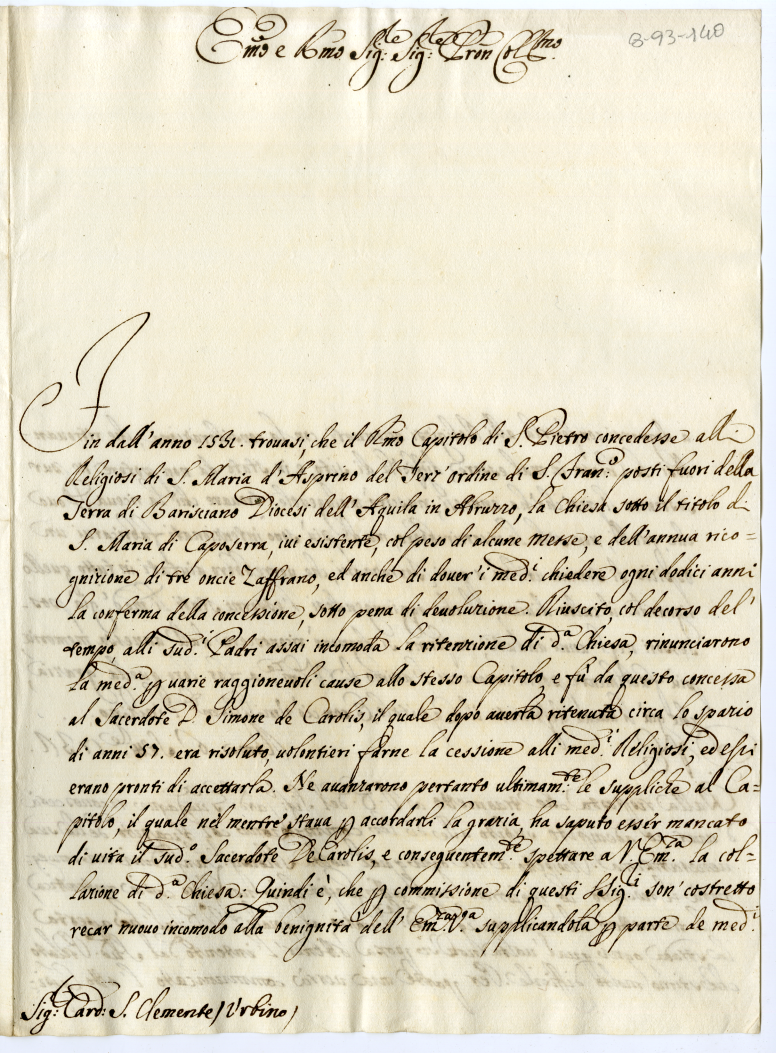 Emo e Rmo Sig:re Sig:re Pron Collmo
B-93-140
Fin dall'anno 1531. trovasi, che il Rmo Capitolo di S. Pietro concedesse alli
Religiosi di S. Maria d'Asprino del Terz'ordine di S. Fran:o posti fuori della
Terra di Barisciano Diocesi dell'Aquila in Abruzzo, la Chiesa sotto il titolo di
S. Maria di Caposerra, iui esistente, col peso di alcune messe, e dell'annua rico=
gnizione di tre oncie Zaffrano, ed anche di dover'i med:i chiedere ogni dodici anni
la conferma della concessione, sotto pena di devoluzione. Riuscito, col decorso del'
tempo, alli sud:i Padri assai incomoda la ritenzione di d:a Chiesa, rinunciarono
la med:a p varie raggionevoli cause allo stesso Capitolo, e fù da questo concessa
al Sacerdote D Simone de Carolis, il quale dopo averla ritenuta circa lo spazio
di anni 57. era risoluto, volontieri farne la cessione alli med:i Religiosi, ed essi
erano pronti di accettarla. Ne avanzarono pertanto ultimam:te le suppliche al Ca=
pitolo, il quale nel mentre stava p accordarli la grazia, ha saputo esser mancato
di vita il sud:o Sacerdote DeCarolis, e conseguentem:te spettare a V. Em:za la col=
lazione di d:a Chiesa: Quindi è, che p commissione di questi SSig:ri son'costretto
recar nuovo incomodo alla benignità dell' Em:za V:a supplicandola p parte de med:i
Sig:r Card: S. Clemente / Urbino /